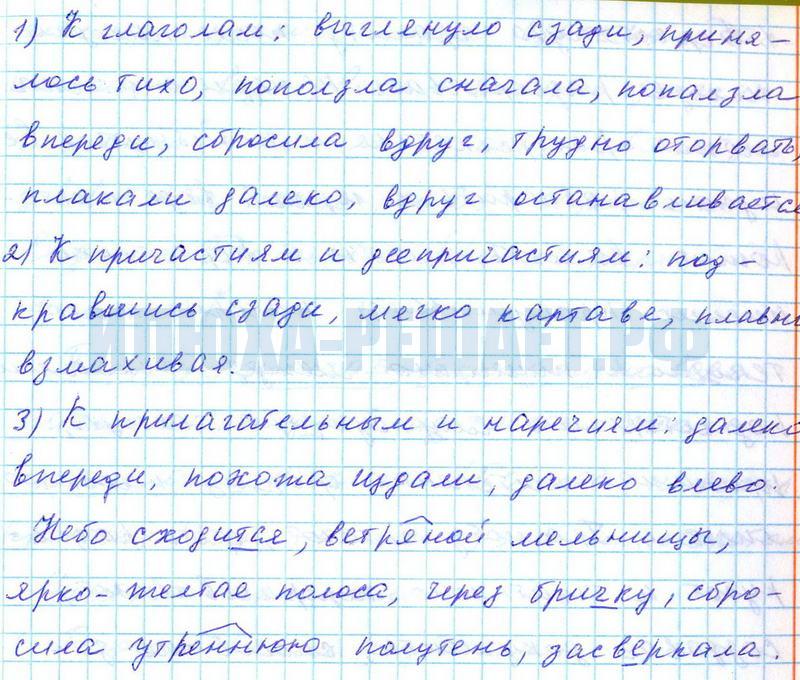 1) К глаголам: выглянуло сзади, приня-
лось тихо, поползла сначала, попалзла
впереди, сбросила вдруг, трудно оторвать,
плакали далеко, вдруг останавливается
2) К причастиям и деепричастиям: под-
кравшись сзади, мягко картавя, плавно
взмахивая.
ИЛЮХА-РЕШАЕТ.РФ
3) К прилагательным и наречиям: далеко
впереди, похожа издали, далеко влево.
Небо сходится, ветряной мельницы,
ярко-желтая полоса, через бричку, сбро-
сила утреннюю полутень, засверкала.